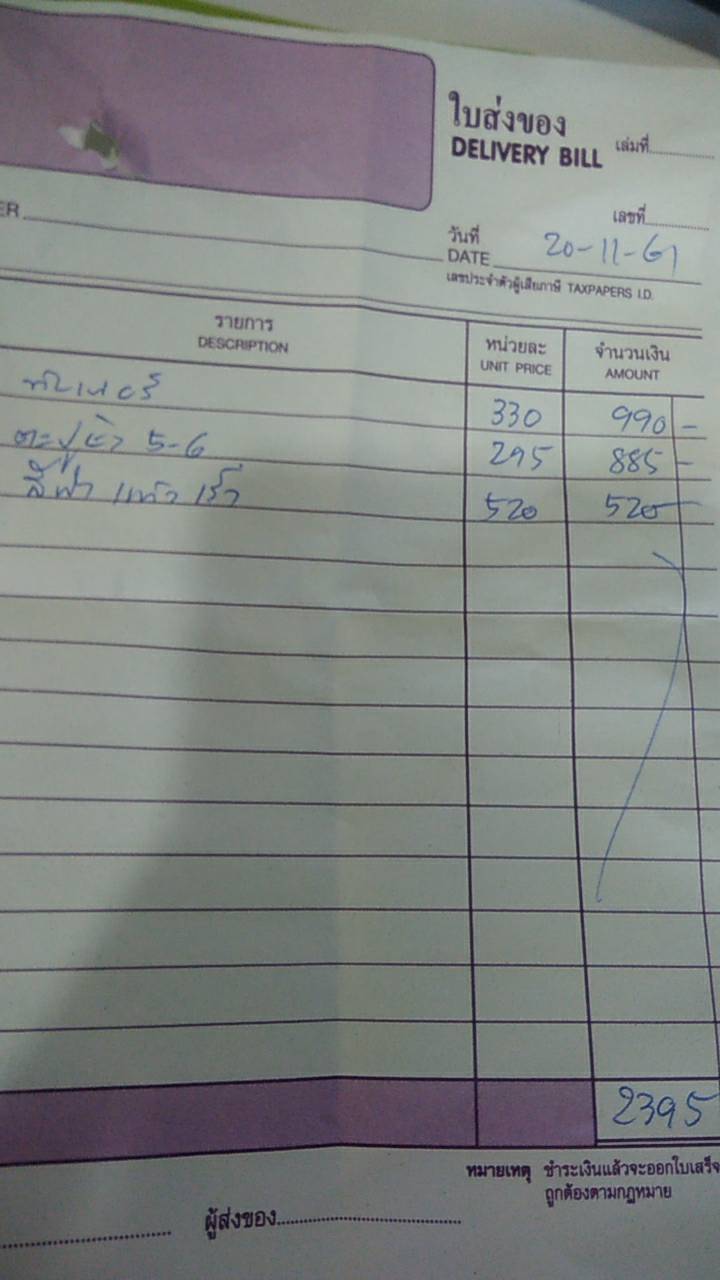 ใบส่งของ
DELIVERY BILL
เล่มที่
เลขที่
ER
วันที่
DATE 20-11-61
เลขประจำตัวผู้เสียภาษี TAXPAPERS I.D.
รายการ
DESCRIPTION
หน่วยละ
UNIT PRICE
จำนวนเงิน
AMOUNT
ทินเนอร์ 330 990 -
ตะปู 5-6 295 885 -
สีฟ้า 520 520 -
2395
หมายเหตุ ชำระเงินแล้วจะออกใบเสร็จ
ถูกต้องตามกฎหมาย
ผู้ส่งของ